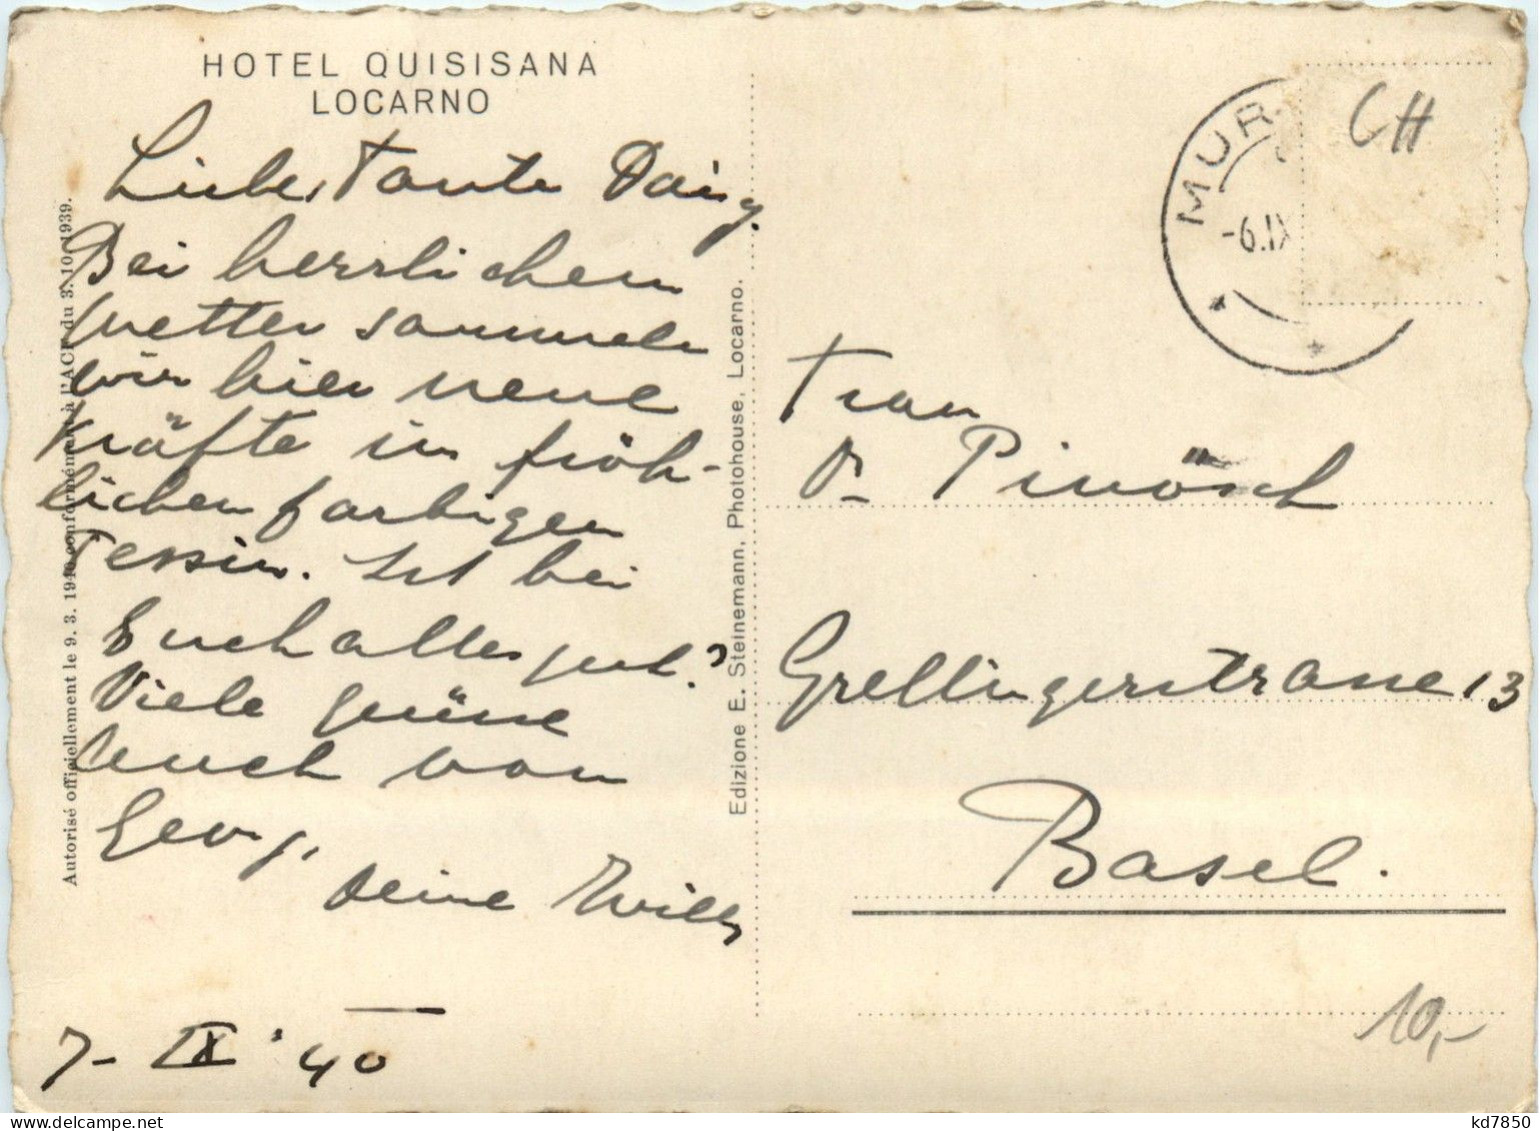 HOTEL QUISISANA
LOCARNO
Liebe Tante Daisy.
Bei herrlichem
Wetter sammeln
wir hier neue
Kräfte im fröh-
lichen farbigen
Tessin. Ist bei
Euch alles gut?
Viele Grüsse
auch von
Georg,
Deine Willy
7- IX ' 40
Autorisé officiellement le 9. 3. 1940 conformément à l'ACF du 3. 10. 1939.
Edizione E. Steinemann, Photohouse, Locarno.
MUR
-6.IX
CH
Frau
Dr Pinösch
Grellingerstrasse 13
Basel.
10,-
kd7850
delcampe.net